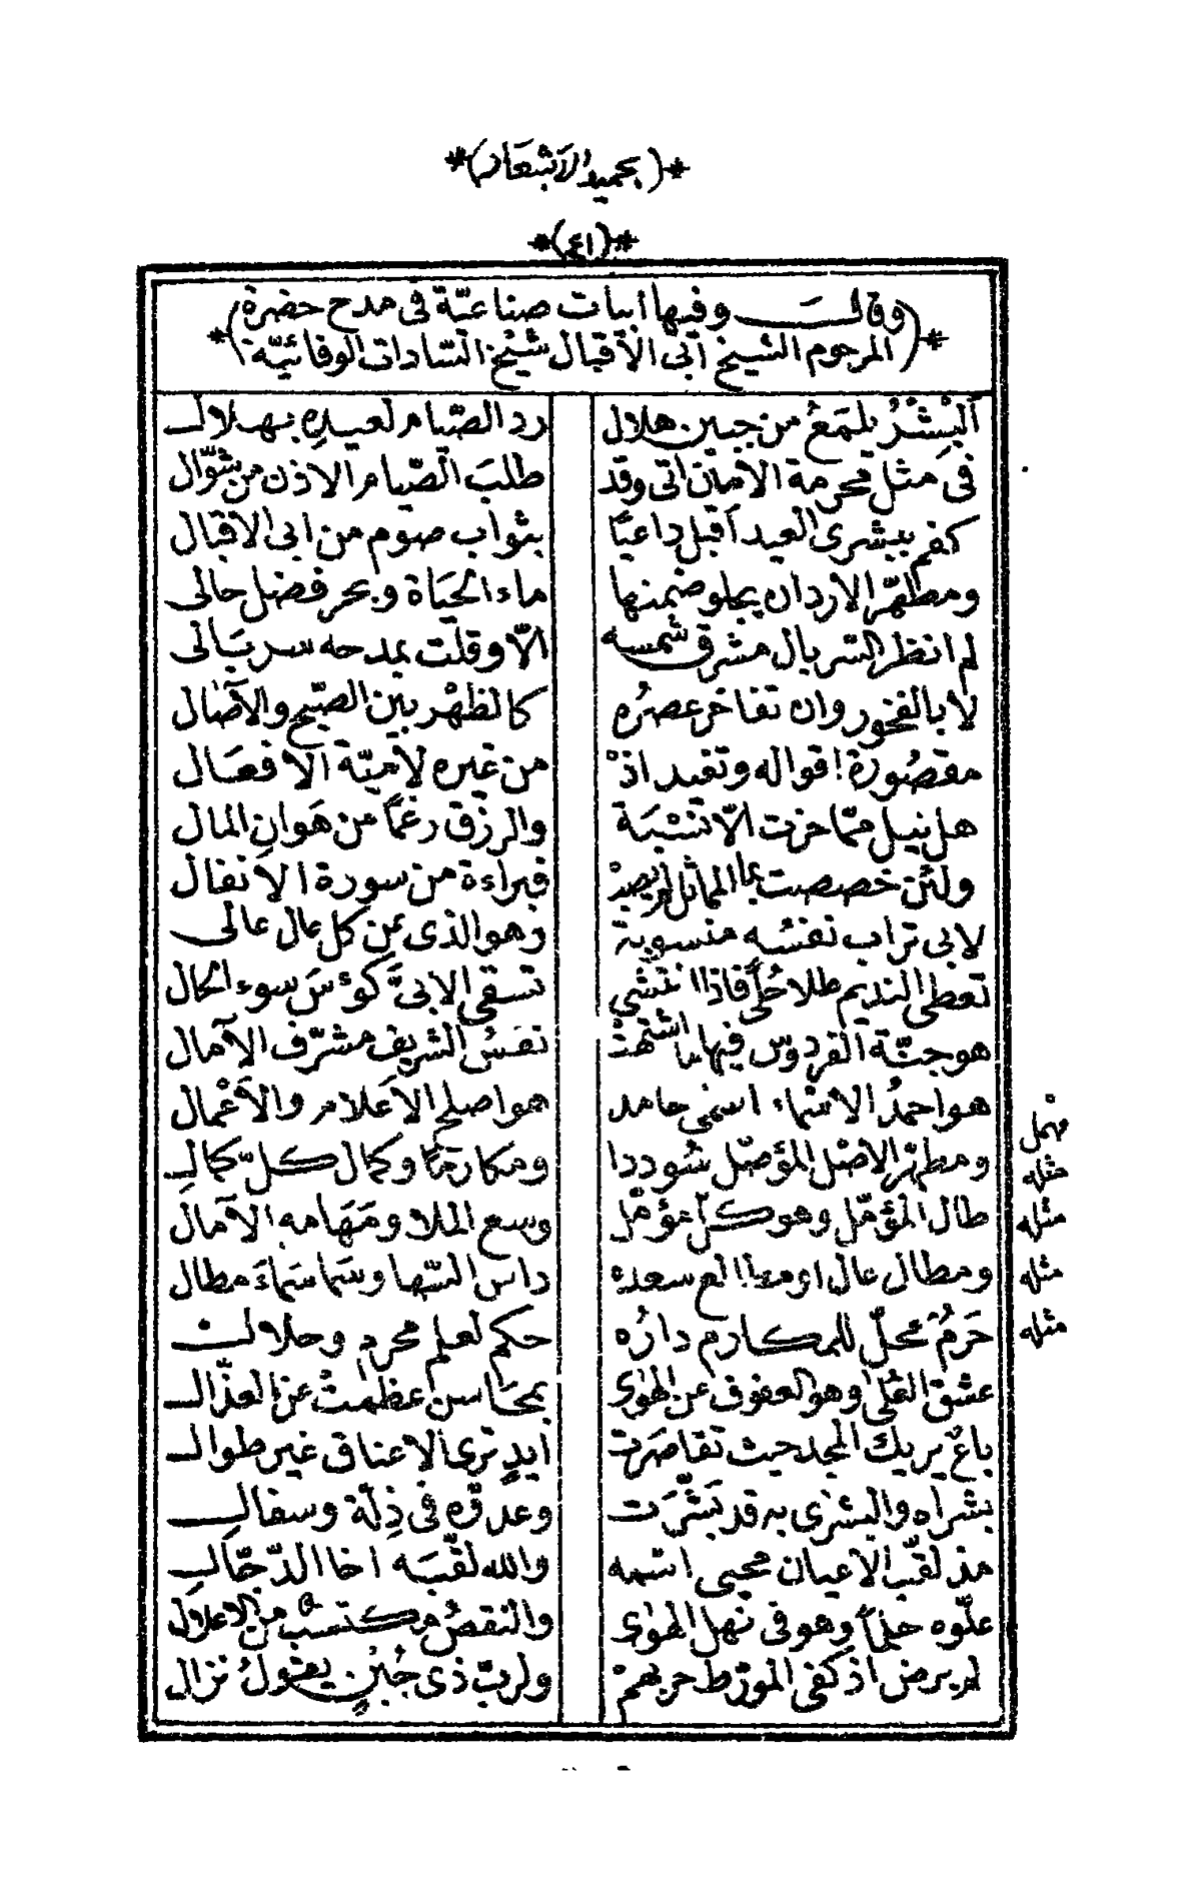 *(بحميد الأشعار)*
*(٤١)*
*(وقالــــــــ وفيها أبيات صناعيّة فى مدح حضرة
المرحوم الشيخ أبى الأقبال شيخ السّادات الوفائيّة)*
اَلبِشْرُ يلمَعُ من جبين هلال رد الصّيام لعيدِه بهلالـ
فى مثل محرمة الأمان اتى وقد طلبَ الصّيام الاذن من شوّال
كفم ببشرى العيد أقبل داعيًا بثواب صوم من ابى الاقبال
ومطهّر الاردان يجلو ضمنها ماء الحَيَاة وبحر فضل حالى
لم انظر السّربال مشرق شمسه الّا وقلت بمدحه سربَالى
لا بالفخور وان تفاخر عصرُه كالظهْر بين الصّبح والآصَال
مقصُورة اقواله وتفيد اذْ من غيره لأميّة الافعَال
هل نيل ممّا حزت الّا تشْبَة والرزق رغمًا من هَوانِ المال
ولئن خصصت بما المماثل لم يصِدْ فبراءة من سورة الأنفال
لابى تراب نفسُه منسوبة وهو الذى من كل عال عالى
تعطى النديم طلا حُلًى فاذا انتشى تسقى الابىَّ كوءسَ سوء الحال
هو جنّة الفردوس فيها ما اشتهتْ نفسُ الشريف مشرّف الآمال
هو احمدُ الاسْماء اسمى حامد هو اصلح الأعلام والأعْمال
ومطهّر الاصْل المؤصّل سُوددا ومكارمًا وكمال كلّ كمالِـ
طال المؤمّل وهو كلّ مؤمّل وسع الملا ومَهَامه الآمال
ومطال عال اومطالع سعده داس السّها وسَما سَماءَ مطال
حَرمُ محلّ للمكارم دارُه حكم لعلم محرم وحلالــ
عشق العُلى وهو العفوف عن الهوى بمحَاسن عظمتْ عن العذّالـ
باعٌ يريك المجد حيث تقاصَرت أيدٍ ترى الاعناق غير طوالـ
بشراه والبشرى به قد بَشَّرت وعدوّه فى ذِلّة وسفالِـ
مذ لقّب الاعيان محيى اسمه والله لقّبَه اخا الدّجّالِـ
علّوه حليًا وهو فى نهل الهوى والنقصُ مكتسب من الاعلال
لم يرض اذ كفى المورّط حربهمْ ولربّ ذى جُبْنٍ يقولُ نزال
مهمل
مثله
مثله
مثله
مثله